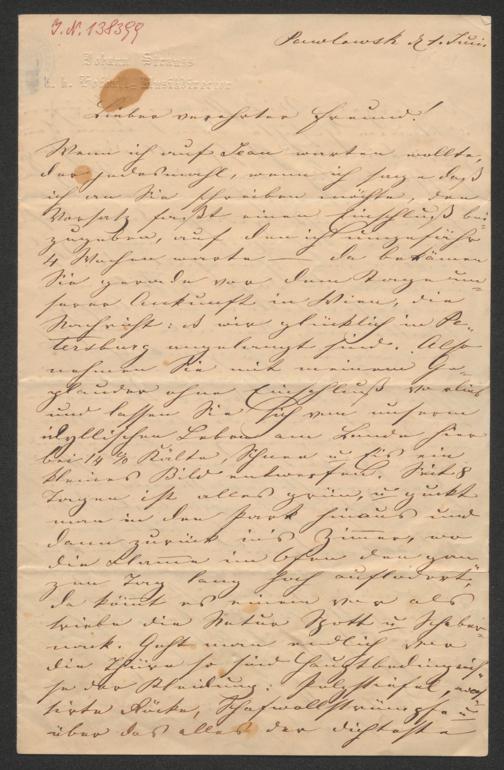 J.N. 138399
Pawlowsk d 1. Juni
Johann Strauss
k. k. Hofball-Musikdirector
Lieber verehrter Freund!
Wenn ich auf Jean warten wollte,
der jedesmahl, wenn ich sage daß
ich an Sie schreiben möchte, den
Vorsatz faßt einen Einschluß bei-
zugeben, auf den ich ungefähr
4 Wochen warte — da bekämen
Sie gerade vor dem Tage un-
serer Ankunft in Wien, die
Nachricht: d wir glücklich in Pe-
tersburg angelangt sind. Also
nehmen Sie mit meinem Ge-
plauder ohne Einschluß vorlieb
und lassen Sie sich von unserm
idyllischen Leben am Lande hier
bei 14 % Kälte, Schnee u Eis ein
kleines Bild entwerfen. Seit 8
Tagen ist alles grün, u guckt
man in den Park hinaus und
dann zurück ins Zimmer, wo
die Flamme im Ofen den gan-
zen Tag lang hoch auflodert,
da kömmt es einem vor als
triebe die Natur Spott u Schaber-
nack. Geht man endlich vor
die Thüre so sind Hauptbedingniß
der Kleidung: Pelzstiefel, wat-
tirte Röcke, Schafwollstrümpfe u
über das alles der dichteste